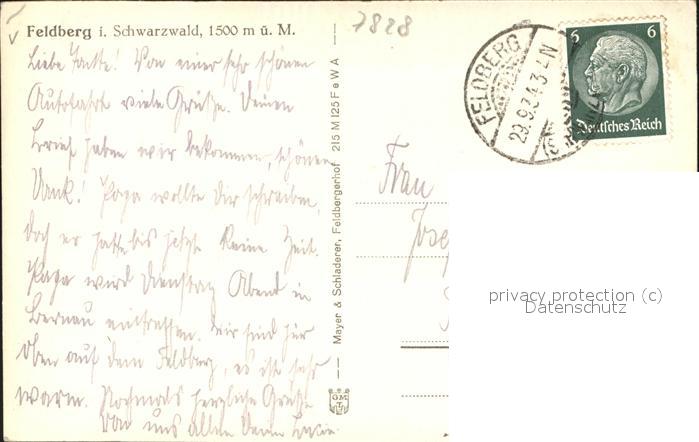 Feldberg i. Schwarzwald, 1500 m ü. M.
7828
Liebe Tante! Von einer sehr schönen
Autofahrt viele Grüße. Deinen
Brief haben wir bekommen, schönen
Dank! Papa wollte Dir schreiben,
doch er hatte bis jetzt keine Zeit.
Papa wird Dienstag Abend in
Bernau eintreffen. Wir sind hier
oben auf dem Feldberg, es ist sehr
warm. Nochmals herzliche Grüße
von uns allen Deine Lucie.
Mayer & Schladerer, Feldbergerhof 215 M 125 F e W A
FELDBERG
29.9.34.3-4N
6 6
Deutsches Reich
Frau
privacy protection (c)
Datenschutz